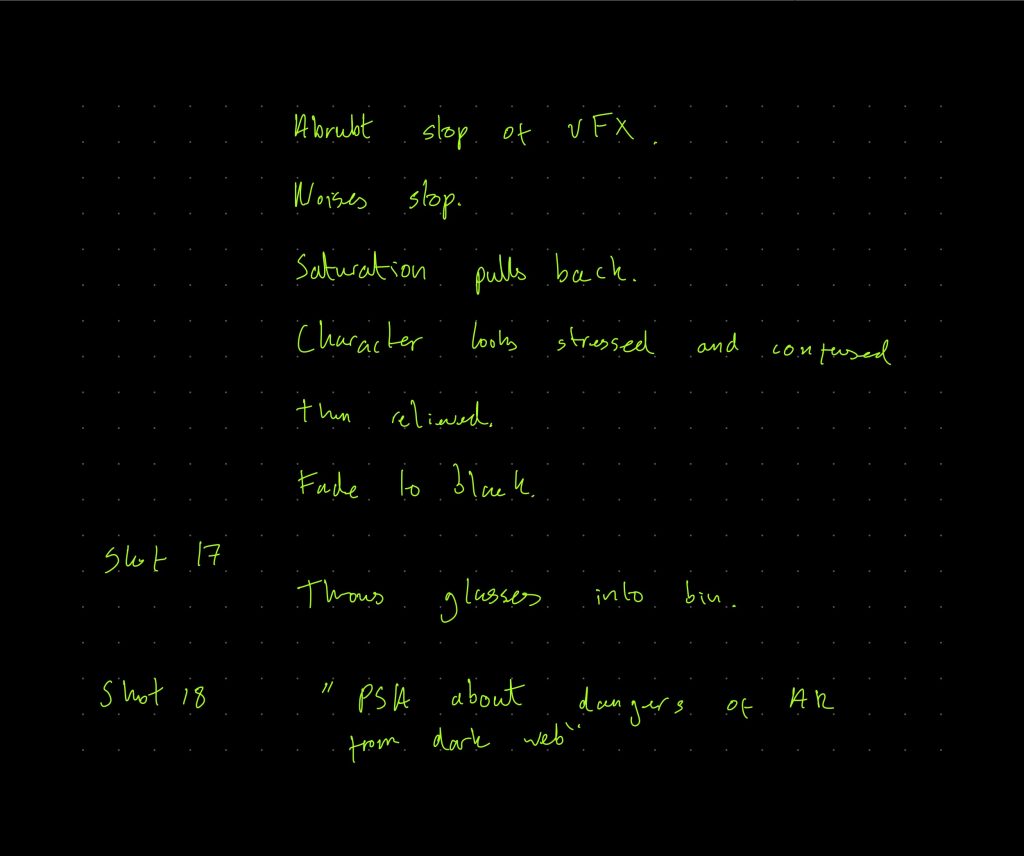 Abrubt stop of VFX.
Noises stop.
Saturation pulls back.
Character looks stressed and confused
then relieved.
Fade to black.
Shot 17
Throws glasses into bin.
Shot 18 "PSA about dangers of AR
from dark web"